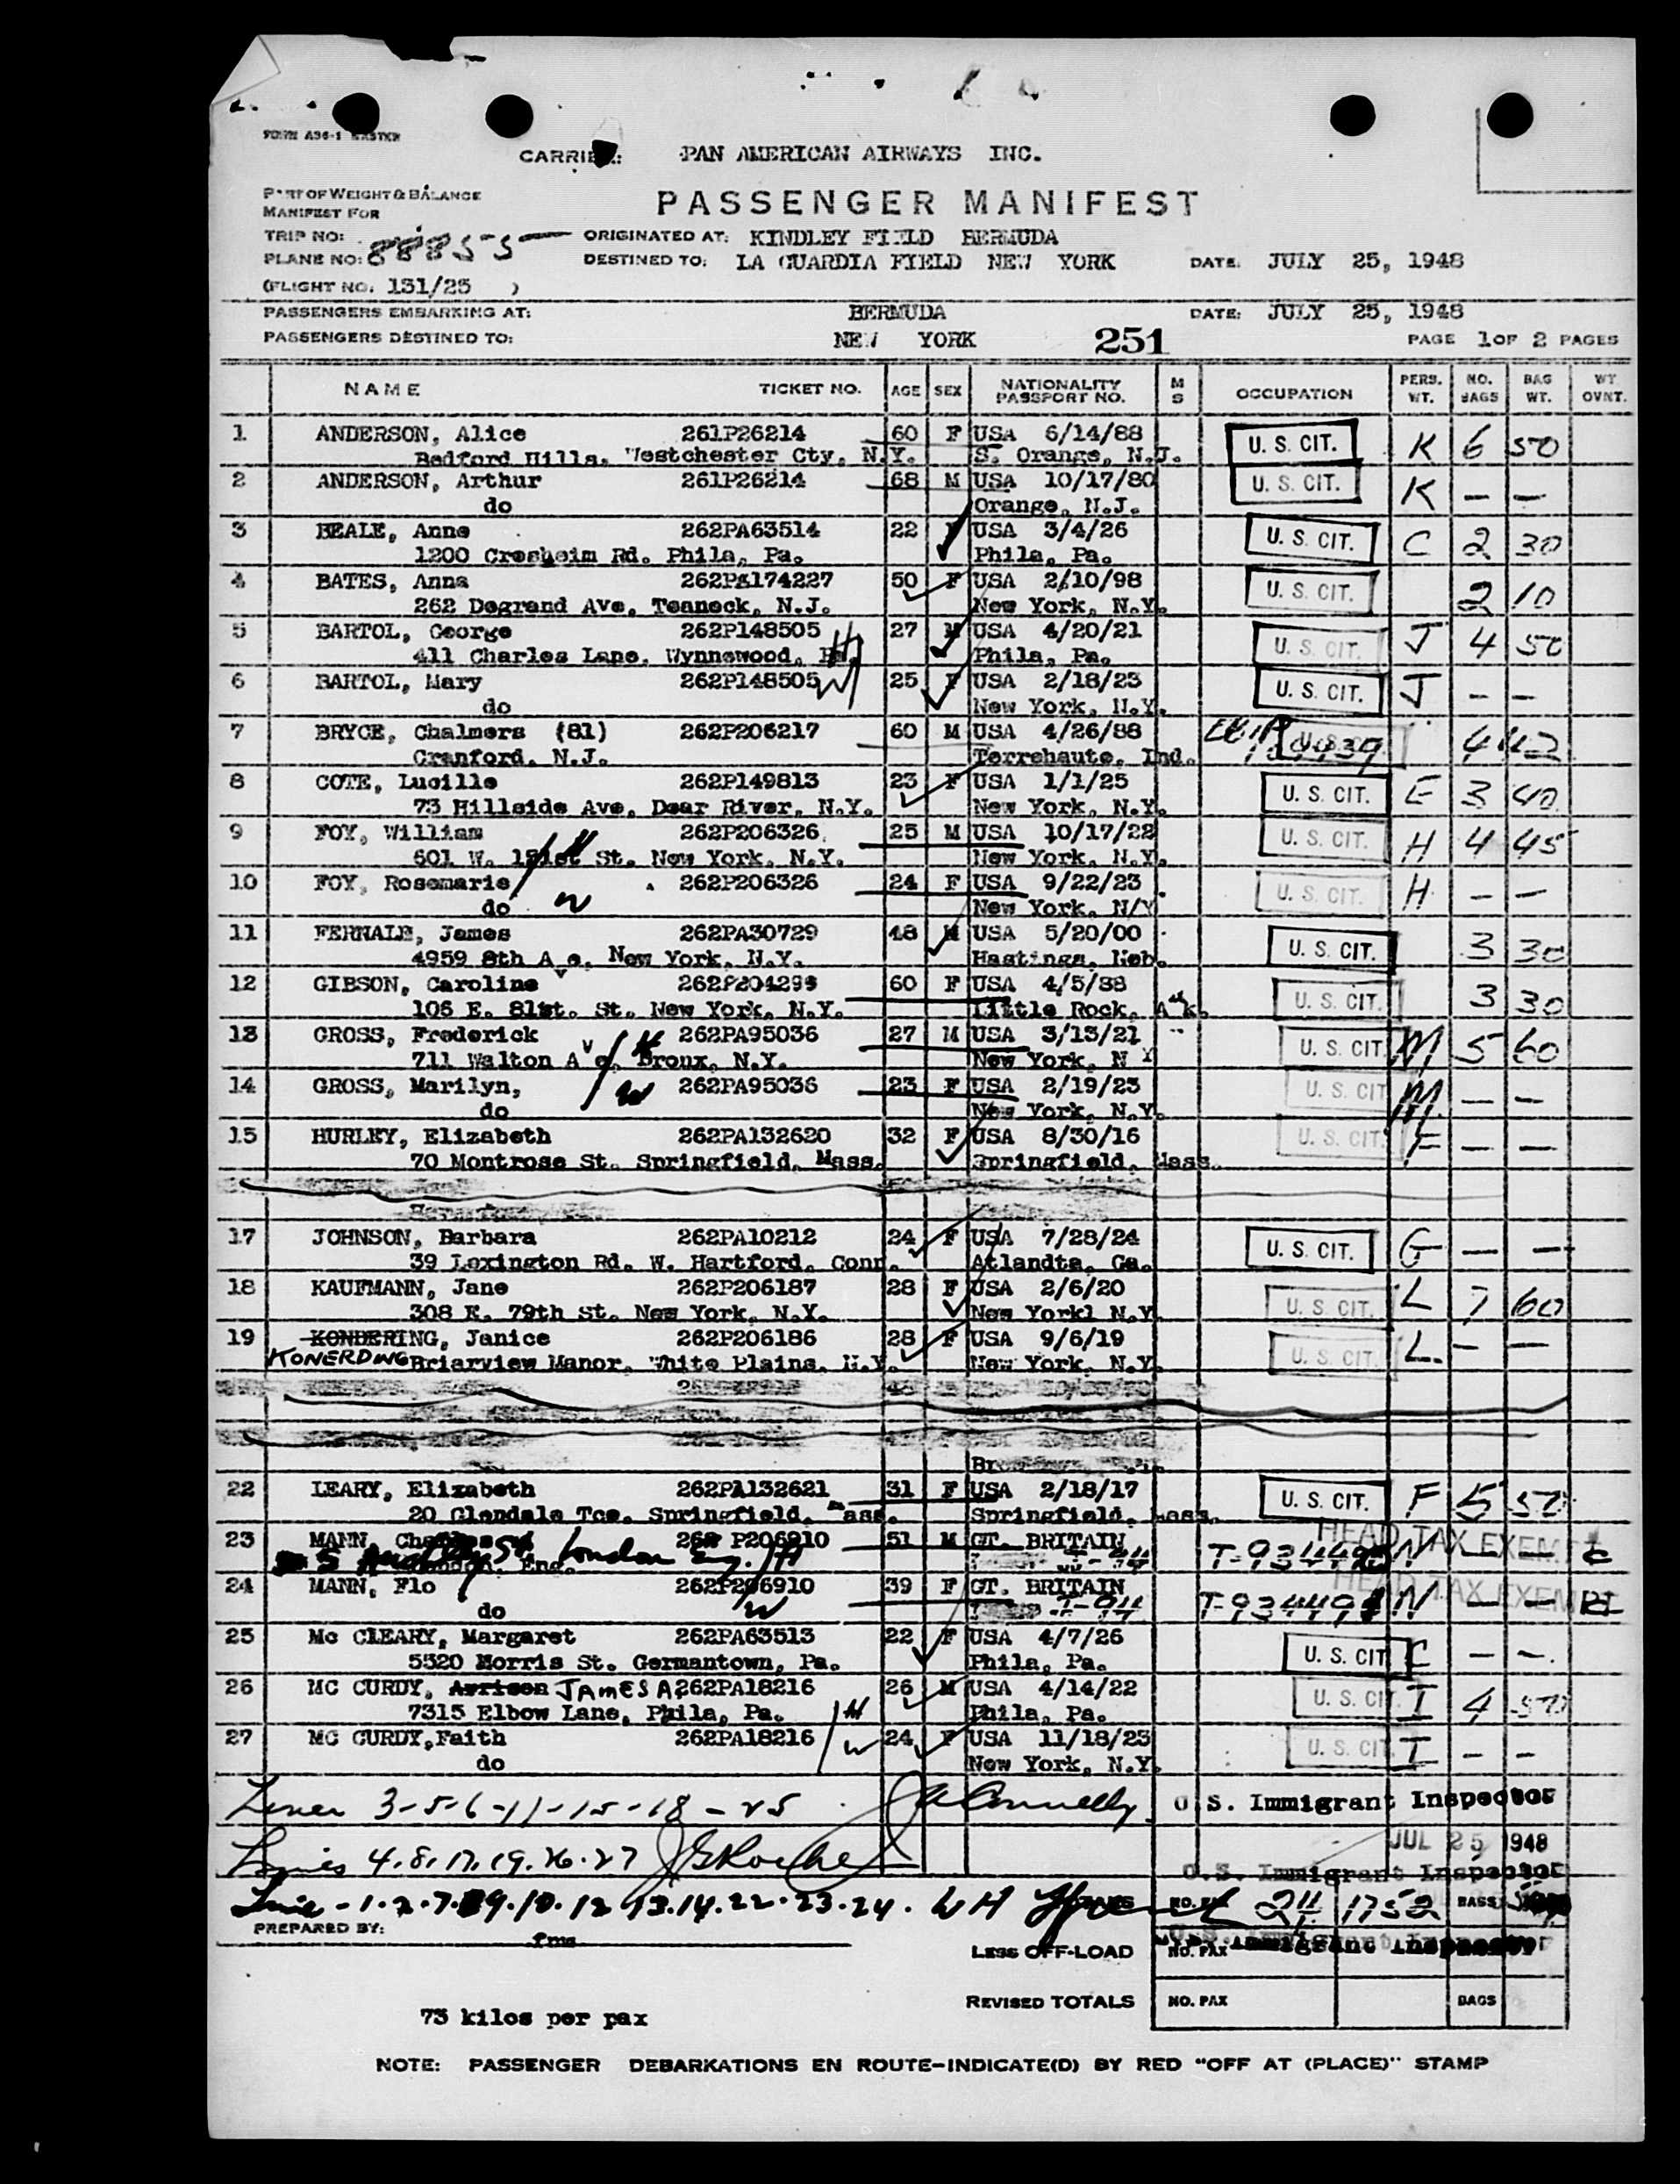 FORM A36-1 EASTERN
CARRIER: PAN AMERICAN AIRWAYS INC.
PART OF WEIGHT & BALANCE
MANIFEST FOR
PASSENGER MANIFEST
TRIP NO:
PLANE NO: 88855
ORIGINATED AT: KINDLEY FIELD BERMUDA
DESTINED TO: LA GUARDIA FIELD NEW YORK DATE: JULY 25, 1948
(FLIGHT NO. 131/25 )
PASSENGERS EMBARKING AT: BERMUDA DATE: JULY 25, 1948
PASSENGERS DESTINED TO: NEW YORK 251 PAGE 1 OF 2 PAGES
NAME TICKET NO. AGE SEX NATIONALITY PASSPORT NO. M S OCCUPATION PERS. WT. NO. BAGS BAG WT. WT. OVNT.
1 ANDERSON, Alice 261P26214 60 F USA 6/14/88 U. S. CIT. K 6 50
Bedford Hills, Westchester Cty, N.Y. S. Orange, N.J.
2 ANDERSON, Arthur 261P26214 68 M USA 10/17/80 U. S. CIT. K — —
do Orange, N.J.
3 BEALE, Anne 262PA63514 22 F USA 3/4/26 U. S. CIT. C 2 30
1200 Cresheim Rd. Phila, Pa. Phila, Pa.
4 BATES, Anna 262PA174227 50 F USA 2/10/98 U. S. CIT. 2 10
262 Degrand Ave, Teaneck, N.J. New York, N.Y.
5 BARTOL, George 262P148505 H 27 M USA 4/20/21 U. S. CIT. J 4 50
411 Charles Lane, Wynnewood, Pa. Phila, Pa.
6 BARTOL, Mary 262P148505 W 25 F USA 2/18/23 U. S. CIT. J — —
do New York, N.Y.
7 BRYCE, Chalmers (81) 262P206217 60 M USA 4/26/88 4 42
Cranford, N.J. Terrehaute, Ind.
8 COTE, Lucille 262P149813 23 F USA 1/1/25 U. S. CIT. E 3 40
73 Hillside Ave, Dear River, N.Y. New York, N.Y.
9 FOY, William 262P206326 25 M USA 10/17/22 U. S. CIT. H 4 45
601 W. St. New York, N.Y. New York, N.Y.
10 FOY, Rosemarie 262P206326 24 F USA 9/22/23 U. S. CIT. H — —
do W New York, N/Y
11 FERNALE, James 262PA30729 48 M USA 5/20/00 U. S. CIT. 3 30
4959 8th Ave, New York, N.Y. Hastings, Neb.
12 GIBSON, Caroline 262P204299 60 F USA 4/5/88 U. S. CIT. 3 30
106 E. 81st. St. New York, N.Y. Little Rock, Ark.
13 GROSS, Frederick 262PA95036 27 M USA 3/13/21 U. S. CIT. M 5 60
711 Walton Ave, Bronx, N.Y. H New York, N Y
14 GROSS, Marilyn, W 262PA95036 23 F USA 2/19/25 U. S. CIT M — —
do New York, N.Y.
15 HURLEY, Elizabeth 262PA132620 32 F USA 8/30/16 U. S. CIT. F — —
70 Montrose St. Springfield, Mass. Springfield, Mass.
17 JOHNSON, Barbara 262PA10212 24 F USA 7/28/24 U. S. CIT. G — —
39 Lexington Rd. W. Hartford, Conn. Atlandta, Ga.
18 KAUFMANN, Jane 262P206187 28 F USA 2/6/20 U. S. CIT. L 7 60
308 E. 79th St. New York, N.Y. New Yorkl N.Y
19 KONDERING, Janice 262P206186 28 F USA 9/6/19 U. S. CIT. L. — —
KONERDING Briarview Manor, White Plains, N.Y. New York, N.Y.
22 LEARY, Elizabeth 262PA132621 31 F USA 2/18/17 U. S. CIT. F 5 50
20 Glendale Tce. Springfield, Mass. Springfield, Mass.
HEAD TAX EXEMPT
23 MANN, P206910 51 M GT. BRITAIN N — —
London Eng. H
HEAD TAX EXEMPT
24 MANN, Flo 262P206910 39 F GT. BRITAIN N — —
do W
25 Mc CLEARY, Margaret 262PA63513 22 F USA 4/7/26 U. S. CIT C — —.
5520 Morris St. Germantown, Pa. Phila, Pa.
26 MC CURDY, JAMES A. 262PA18216 26 M USA 4/14/22 U. S. CIT. I 4 50
7315 Elbow Lane, Phila, Pa. H Phila, Pa.
27 MC CURDY, Faith 262PA18216 W 24 F USA 11/18/23 U. S. CIT. I — —
do New York, N.Y.
3-5-6-11-15-18-25 U. S. Immigrant Inspector
JUL 25 1948
4.8.17.19.26.27
U.S. Immigrant Inspector
1.2.7.9.10.12.13.14.22.23.24. 24 1752 BAGS
PREPARED BY: fms
U.S. Immigrant Inspector
LESS OFF-LOAD NO. PAX
REVISED TOTALS NO. PAX BAGS
73 kilos per pax
NOTE: PASSENGER DEBARKATIONS EN ROUTE-INDICATE(D) BY RED "OFF AT (PLACE)" STAMP